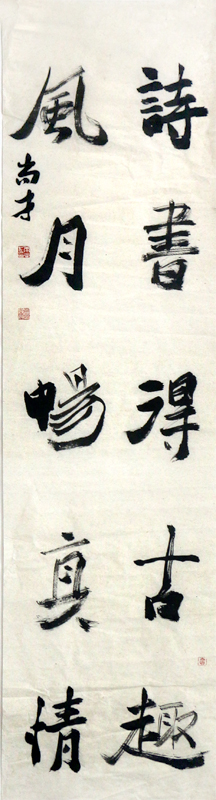 詩書得古趣
風月暢真情
尚才